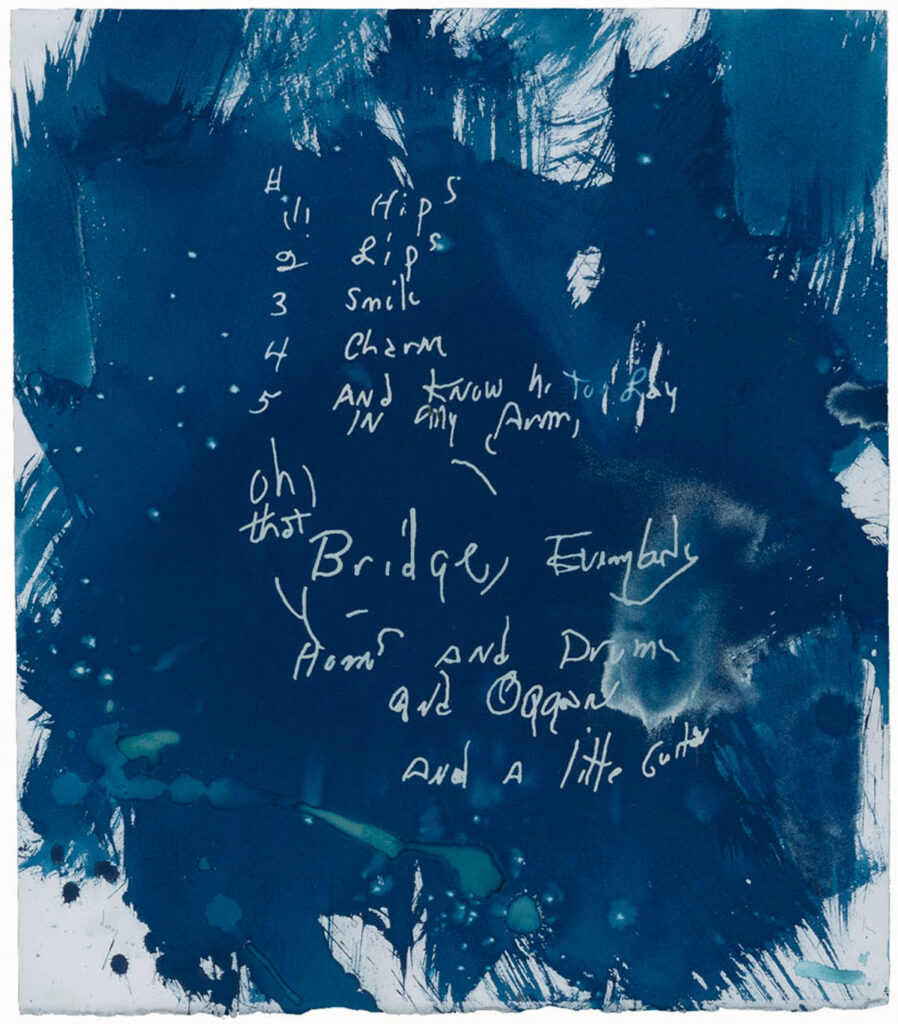 #
1. Hips
2 Lips
3 Smile
4 Charm
5 And Know h. to Lay
IN My Arm,
oh,
that
Bridge, Everybody
Horns AND Drums
and
And A little Guitar